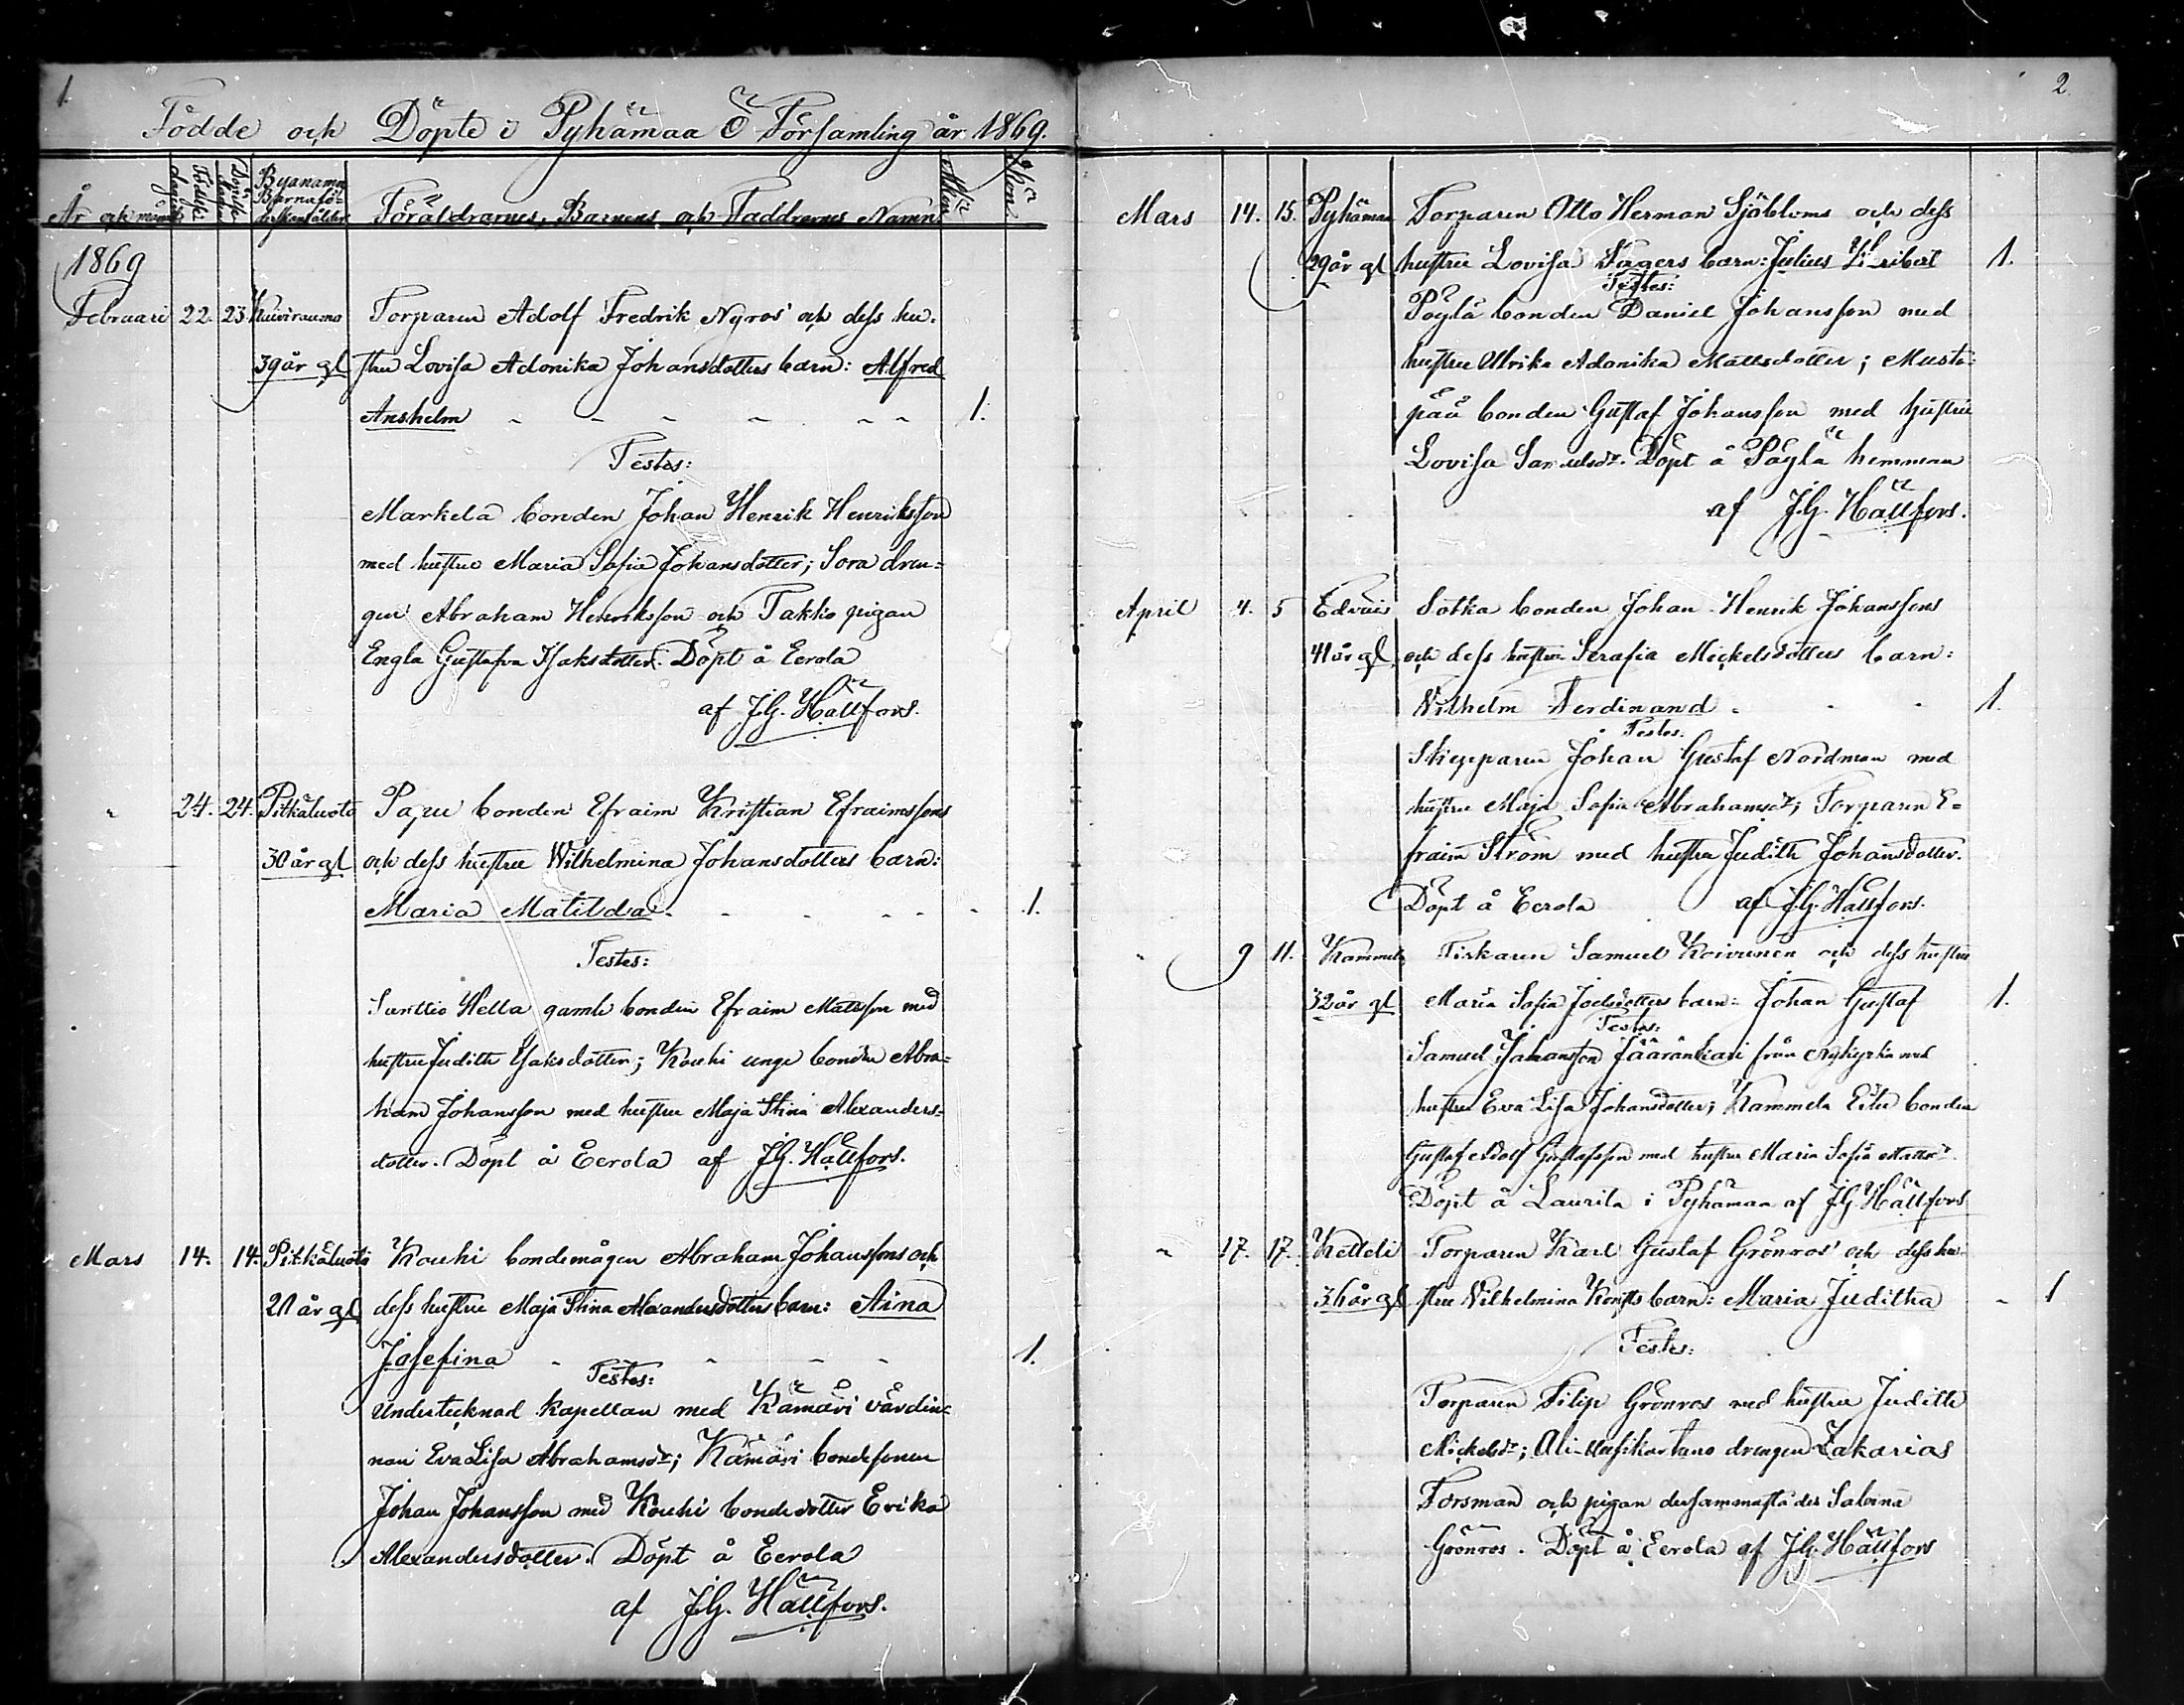 1.
Födde och Döpte i Pyhämaa Ö Församling år 1869.
År och månad
Födelse dagen
Döpelse dagen
Byanamn
Barnaföderskans ålder
Föräldrarnes, Barnens och Faddrarnes Namn
Mankön
Qvinkön
1869
Februari 22. 23 Kuivirauma Torparen Adolf Fredrik Nyros' och dess hu-
39 år gl stru Lovisa Adonika Johansdotters barn: Alfred
Anshelm 1.
Testes:
Markela bonden Johan Henrik Henriksson
med hustru Maria Sofia Johansdotter; Sora dren-
gen Abraham Henriksson och Takkio pigan
Engla Gustafva Isaksdotter. Döpt å Eerola
af J.G. Hällfors.
" 24. 24. Pitkäluoto Papu bonden Efraim Kristian Efraimssons
30 år gl och dess hustru Wilhelmina Johansdotters barn:
Maria Matilda 1.
Testes:
Santtio Hella gamle bonden Efraim Mattsson med
hustru Judith Isaksdotter; Kouhi unge bonden Abra-
ham Johansson med hustru Maja Stina Alexanders-
dotter. Döpt å Eerola af J.G. Hällfors.
Mars 14. 14. Pitkäluoto Kouhi bondemågen Abraham Johanssons och
21 år gl dess hustru Maja Stina Alexandersdotters barn: Aina
Josefina 1.
Testes:
Undertecknad kapellan med Kämäri värdin-
nan Eva Lisa Abrahamsdr; Kämäri bondesonen
Johan Johansson med Kouhi bondedotter Erika
Alexandersdotter. Döpt å Eerola
af J.G. Hällfors.
2
Mars 14. 15. Pyhämaa Torparen Otto Herman Sjöbloms och dess
29 år gl hustru Lovisa Fagers barn: Julius 1.
Testes:
Pöylä bonden Daniel Johansson med
hustru Ulrika Adonika Mattsdotter; Musta-
pää bonden Gustaf Johansson med hustru
Lovisa Samuelsdr. Döpt å Pöylä hemman
af J.G. Hällfors.
April 4. 5 Edväis Sotka bonden Johan Henrik Johanssons
41 år gl och dess hustru Serafia Mickelsdotters barn:
Wilhelm Ferdinand 1.
Testes.
Skepparen Johan Gustaf Nordman med
hustru Maja Sofia Abrahamsdr; Torparen E-
fraim Ström med hustru Judith Johansdotter.
Döpt å Eerola af J.G. Hällfors.
" 9 11. Kammela Fiskaren Samuel Koivunen och dess hustru
32 år gl Maria Sofia Joelsdotters barn: Johan Gustaf 1.
Testes:
Samuel Johansson Jääränkari från Nykyrko med
hustru Eva Lisa Johansdotter; Kammela Eitu bonden
Gustaf Adolf Gustafsson med hustru Maria Sofia Mattsdr.
Döpt å Laurila i Pyhämaa af J.G. Hällfors
" 17. 17. Ketteli Torparen Karl Gustaf Grönros' och dess hu-
36 år gl stru Wilhelmina barn: Maria Juditha 1
Testes:
Torparen Filip Grönros med hustru Judith
Mickelsdr; Ali-Uusikartano drengen Zakarias
Forsman och pigan dersammastädes Sabina
Grönros. Döpt å Eerola af J.G. Hällfors